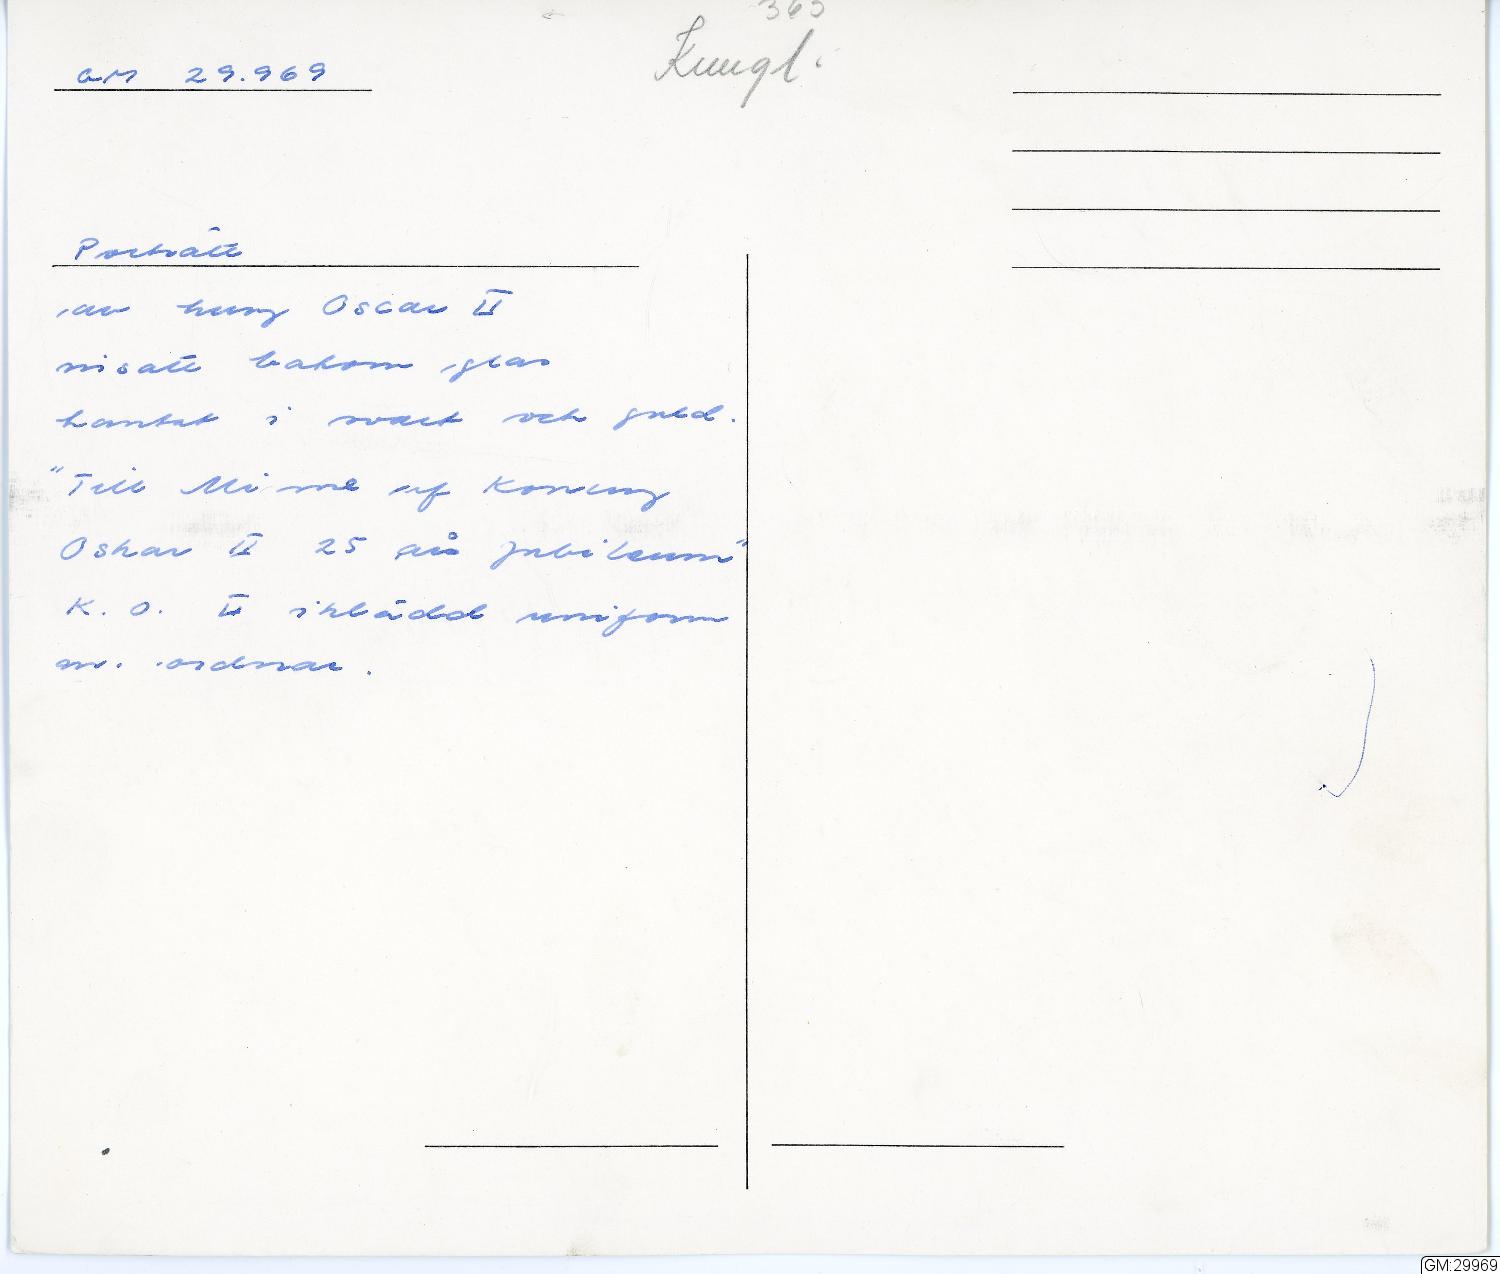 365
Kungl.
GM 29.969
Porträtt
av kung Oscar II
insatt bakom glas
kantat i svart och guld.
"Till Minne af Konung
Oskar II 25 års jubileum"
K. O. II iklädd uniform
m. ordnar.
GM:29969